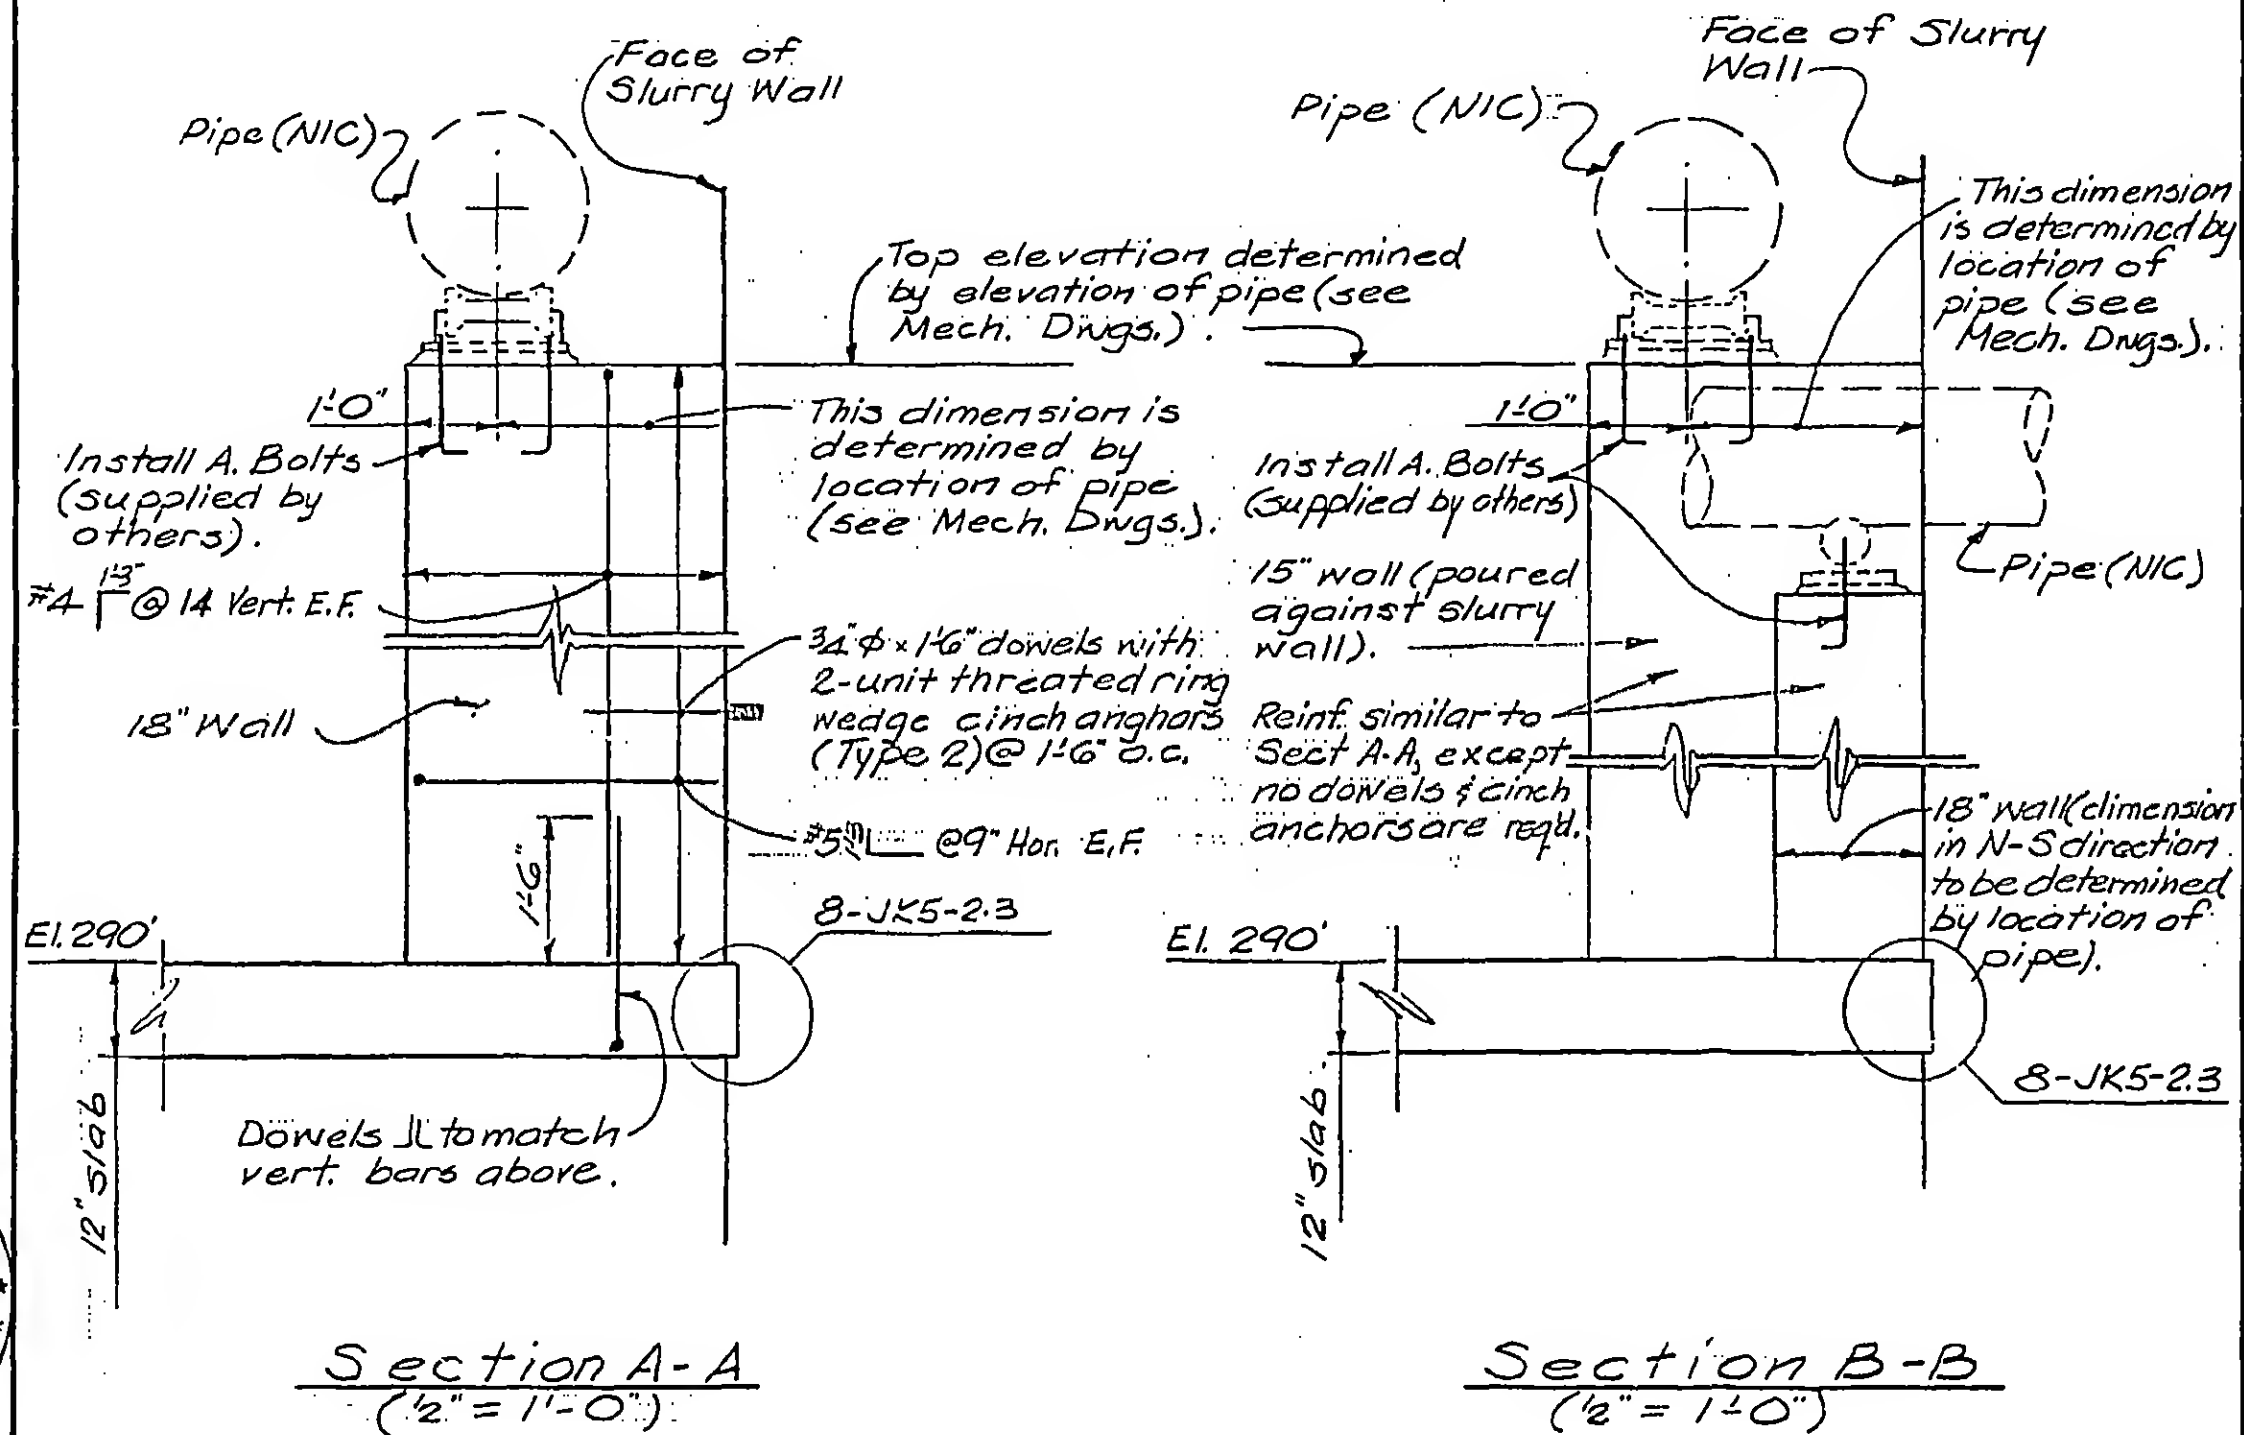 Face of
Slurry Wall
Pipe (NIC)
Top elevation determined
by elevation of pipe (see
Mech. Dwgs.).
1'-0"
This dimension is
determined by
location of pipe
(see Mech. Dwgs.).
Install A. Bolts
(supplied by
others).
1'-3"
#4 @ 14 Vert. E.F.
3/4" φ x 1'-6" dowels with
2-unit threated ring
wedge cinch anghors
(Type 2) @ 1'-6" o.c.
18" Wall
#5 @9" Hor. E.F.
1'-6"
8-JK5-2.3
El. 290'
12" slab
Dowels to match
vert. bars above.
Section A-A
(1/2" = 1'-0")
Face of Slurry
Wall
Pipe (NIC)
This dimension
is determined by
location of
pipe (see
Mech. Dwgs.).
1'-0"
Install A. Bolts
(supplied by others)
Pipe (NIC)
15" wall (poured
against slurry
wall).
Reinf. similar to
Sect A-A, except
no dowels & cinch
anchors are req'd.
18" wall (dimension
in N-S direction
to be determined
by location of
pipe).
El. 290'
8-JK5-2.3
12" slab
Section B-B
(1/2" = 1'-0")